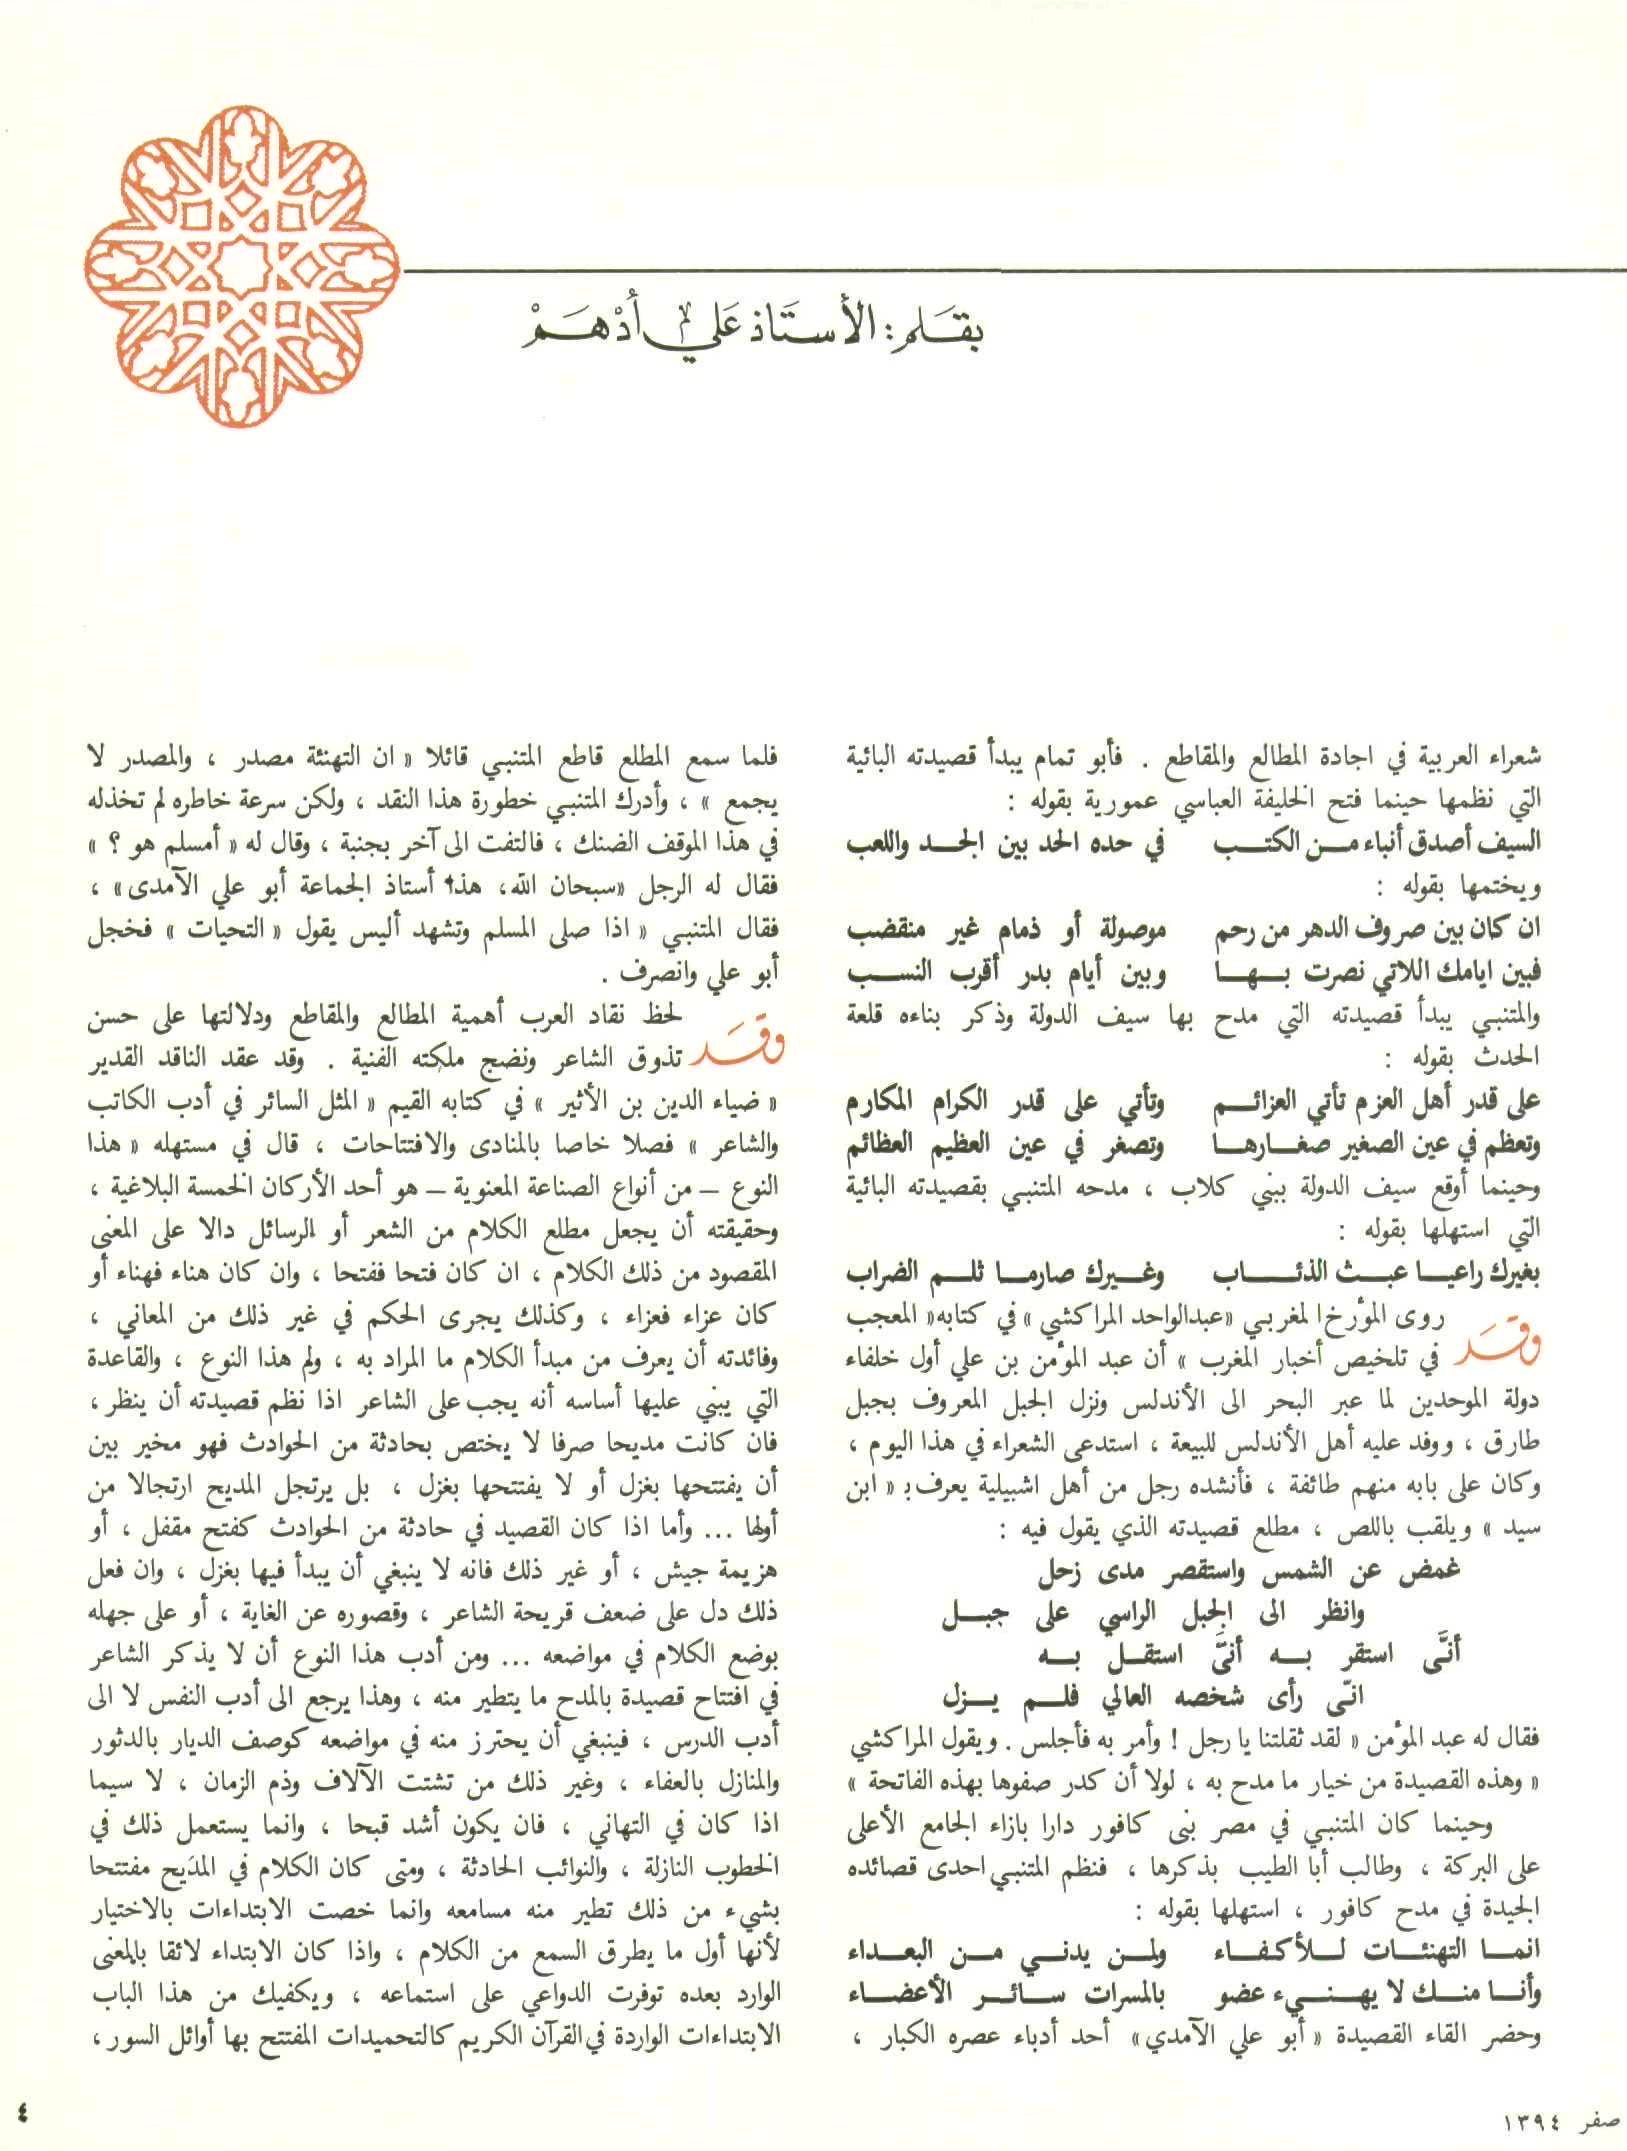 بقلم: الأستاذ علي أدهم
شعراء العربية في اجادة المطالع والمقاطع . فأبو تمام يبدأ قصيدته البائية
التي نظمها حينما فتح الخليفة العباسي عمورية بقوله :
السيف أصدق أنباء من الكتب في حده الحد بين الجد واللعب
ويختمها بقوله :
ان كان بين صروف الدهر من رحم موصولة أو ذمام غير منقضب
فبين ايامك اللاتي نصرت بها وبين أيام بدر أقرب النسب
والمتنبي يبدأ قصيدته التي مدح بها سيف الدولة وذكر بناءه قلعة
الحدث بقوله :
على قدر أهل العزم تأتي العزائم وتأتي على قدر الكرام المكارم
وتعظم في عين الصغير صغارها وتصغر في عين العظيم العظائم
وحينما أوقع سيف الدولة ببني كلاب ، مدحه المتنبي بقصيدته البائية
التي استهلها بقوله :
بغيرك راعيا عبث الذئاب وغيرك صارما ثلم الضراب
وقد روى المؤرخ المغربي «عبدالواحد المراكشي» في كتابه« المعجب
في تلخيص أخبار المغرب » أن عبد المؤمن بن علي أول خلفاء
دولة الموحدين لما عبر البحر الى الأندلس ونزل الجبل المعروف بجبل
طارق ، ووفد عليه أهل الأندلس للبيعة ، استدعى الشعراء في هذا اليوم ،
وكان على بابه منهم طائفة ، فأنشده رجل من أهل اشبيلية يعرف بـ « ابن
سيد » ويلقب باللص ، مطلع قصيدته الذي يقول فيه :
غمض عن الشمس واستقصر مدى زحل
وانظر الى الجبل الراسي على جبل
أنَّى استقر به أنَّى استقل به
انّى رأى شخصه العالي فلم يزل
فقال له عبد المؤمن « لقد ثقلتنا يا رجل ! وأمر به فأجلس . ويقول المراكشي
« وهذه القصيدة من خيار ما مدح به ، لولا أن كدر صفوها بهذه الفاتحة »
وحينما كان المتنبي في مصر بنى كافور دارا بازاء الجامع الأعلى
على البركة ، وطالب أبا الطيب بذكرها ، فنظم المتنبي احدى قصائده
الجيدة في مدح كافور ، استهلها بقوله :
انما التهنئات للأكفاء ولمن يدني من البعداء
وأنا منك لا يهنيء عضو بالمسرات سائر الأعضاء
وحضر القاء القصيدة « أبو علي الآمدي» أحد أدباء عصره الكبار ،
فلما سمع المطلع قاطع المتنبي قائلا « ان التهنئة مصدر ، والمصدر لا
يجمع » ، وأدرك المتنبي خطورة هذا النقد ، ولكن سرعة خاطره لم تخذله
في هذا الموقف الضنك ، فالتفت الى آخر بجنبة ، وقال له « أمسلم هو ؟ »
فقال له الرجل «سبحان الله، هذا أستاذ الجماعة أبو علي الآمدى» ،
فقال المتنبي « اذا صلى المسلم وتشهد أليس يقول « التحيات » فخجل
أبو علي وانصرف .
وقد لحظ نقاد العرب أهمية المطالع والمقاطع ودلالتها على حسن
تذوق الشاعر ونضج ملكته الفنية . وقد عقد الناقد القدير
« ضياء الدين بن الأثير » في كتابه القيم « المثل السائر في أدب الكاتب
والشاعر » فصلا خاصا بالمنادى والافتتاحات ، قال في مستهله « هذا
النوع – من أنواع الصناعة المعنوية – هو أحد الأركان الخمسة البلاغية ،
وحقيقته أن يجعل مطلع الكلام من الشعر أو الرسائل دالا على المعنى
المقصود من ذلك الكلام ، ان كان فتحا ففتحا ، وان كان هناء فهناء أو
كان عزاء فعزاء ، وكذلك يجرى الحكم في غير ذلك من المعاني ،
وفائدته أن يعرف من مبدأ الكلام ما المراد به ، ولم هذا النوع ، والقاعدة
التي يبني عليها أساسه أنه يجب على الشاعر اذا نظم قصيدته أن ينظر ،
فان كانت مديحا صرفا لا يختص بحادثة من الحوادث فهو مخير بين
أن يفتتحها بغزل أو لا يفتتحها بغزل ، بل يرتجل المديح ارتجالا من
أولها ... وأما اذا كان القصيد في حادثة من الحوادث كفتح مقفل ، أو
هزيمة جيش ، أو غير ذلك فانه لا ينبغي أن يبدأ فيها بغزل ، وان فعل
ذلك دل على ضعف قريحة الشاعر ، وقصوره عن الغاية ، أو على جهله
بوضع الكلام في مواضعه ... ومن أدب هذا النوع أن لا يذكر الشاعر
في افتتاح قصيدة بالمدح ما يتطير منه ، وهذا يرجع الى أدب النفس لا الى
أدب الدرس ، فينبغي أن يحترز منه في مواضعه كوصف الديار بالدثور
والمنازل بالعفاء ، وغير ذلك من تشتت الآلاف وذم الزمان ، لا سيما
اذا كان في التهاني ، فان يكون أشد قبحا ، وانما يستعمل ذلك في
الخطوب النازلة ، والنوائب الحادثة ، ومتى كان الكلام في المديح مفتتحا
بشيء من ذلك تطير منه مسامعه وانما خصت الابتداءات بالاختيار
لأنها أول ما يطرق السمع من الكلام ، واذا كان الابتداء لائقا بالمعنى
الوارد بعده توفرت الدواعي على استماعه ، ويكفيك من هذا الباب
الابتداءات الواردة في القرآن الكريم كالتحميدات المفتتح بها أوائل السور ،
صفر ١٣٩٤
٤